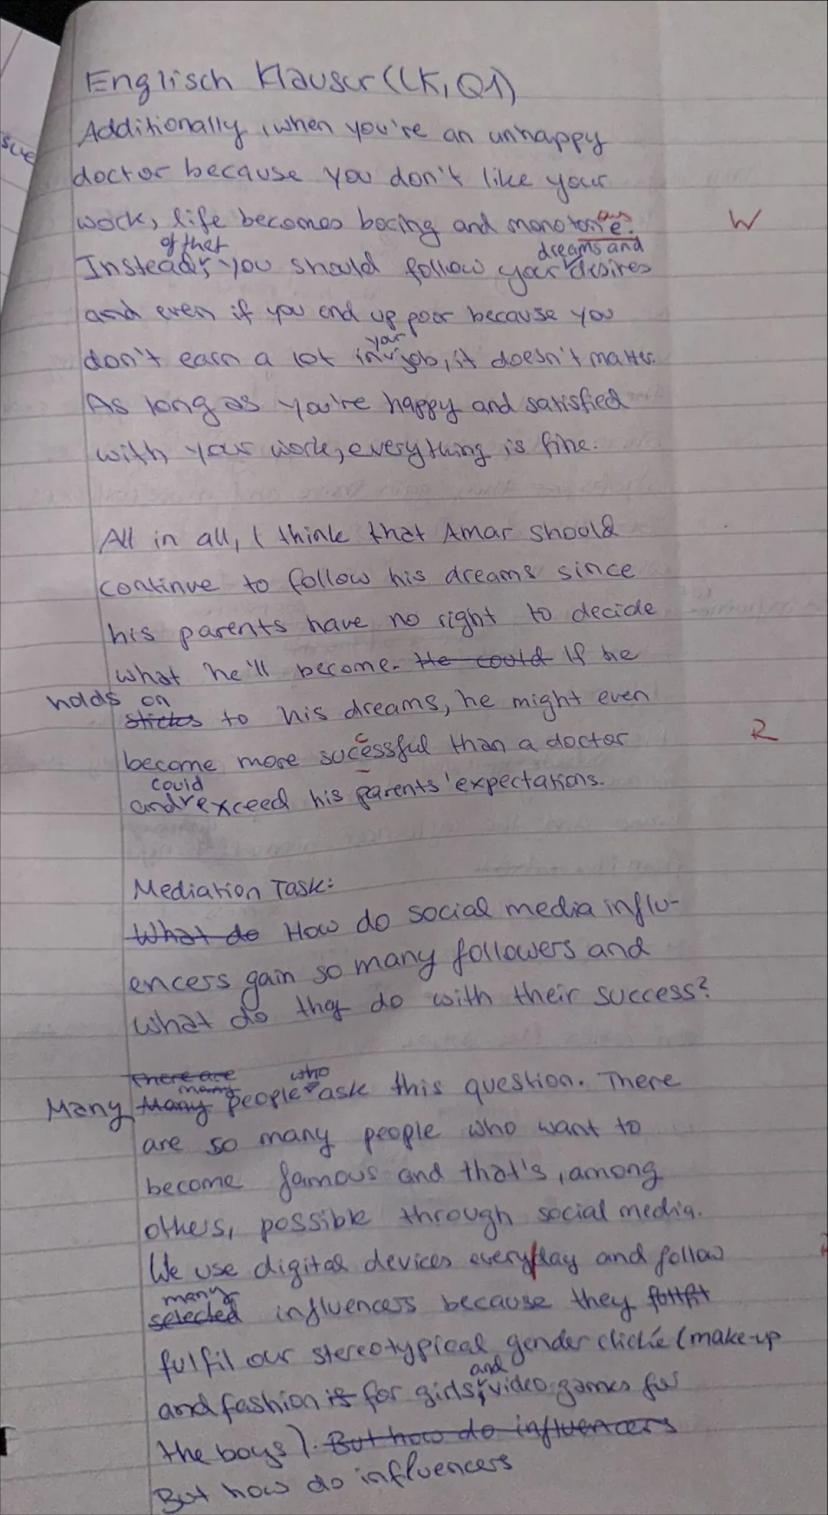 Englisch Klausur (LK, Q1)
Additionally, when you're an unhappy
doctor because you don't like your
work, life becomes boring and monotone. ous W
Instead of that, you should follow your dreams and desires
and even if you end up poor because you
don't earn a lot in your job, it doesn't matter.
As long as you're happy and satisfied
with your work, everything is fine.
All in all, I think that Amar should
continue to follow his dreams since
his parents have no right to decide
what he'll become. He could If he
holds on sticks to his dreams, he might even
become more sucessful than a doctor c R
and could exceed his parents' expectations.
Mediation Task:
What do How do social media influ-
encers gain so many followers and
what do they do with their success?
There are
Many Many many people who ask this question. There
are so many people who want to
become famous and that's, among
others, possible through social media.
We use digital devices everyday and follow
selected many influencers because they
fulfil our stereotypical gender clichée (make-up
and fashion is for girls, and video games for
the boys). But how do influencers
But how do influencers